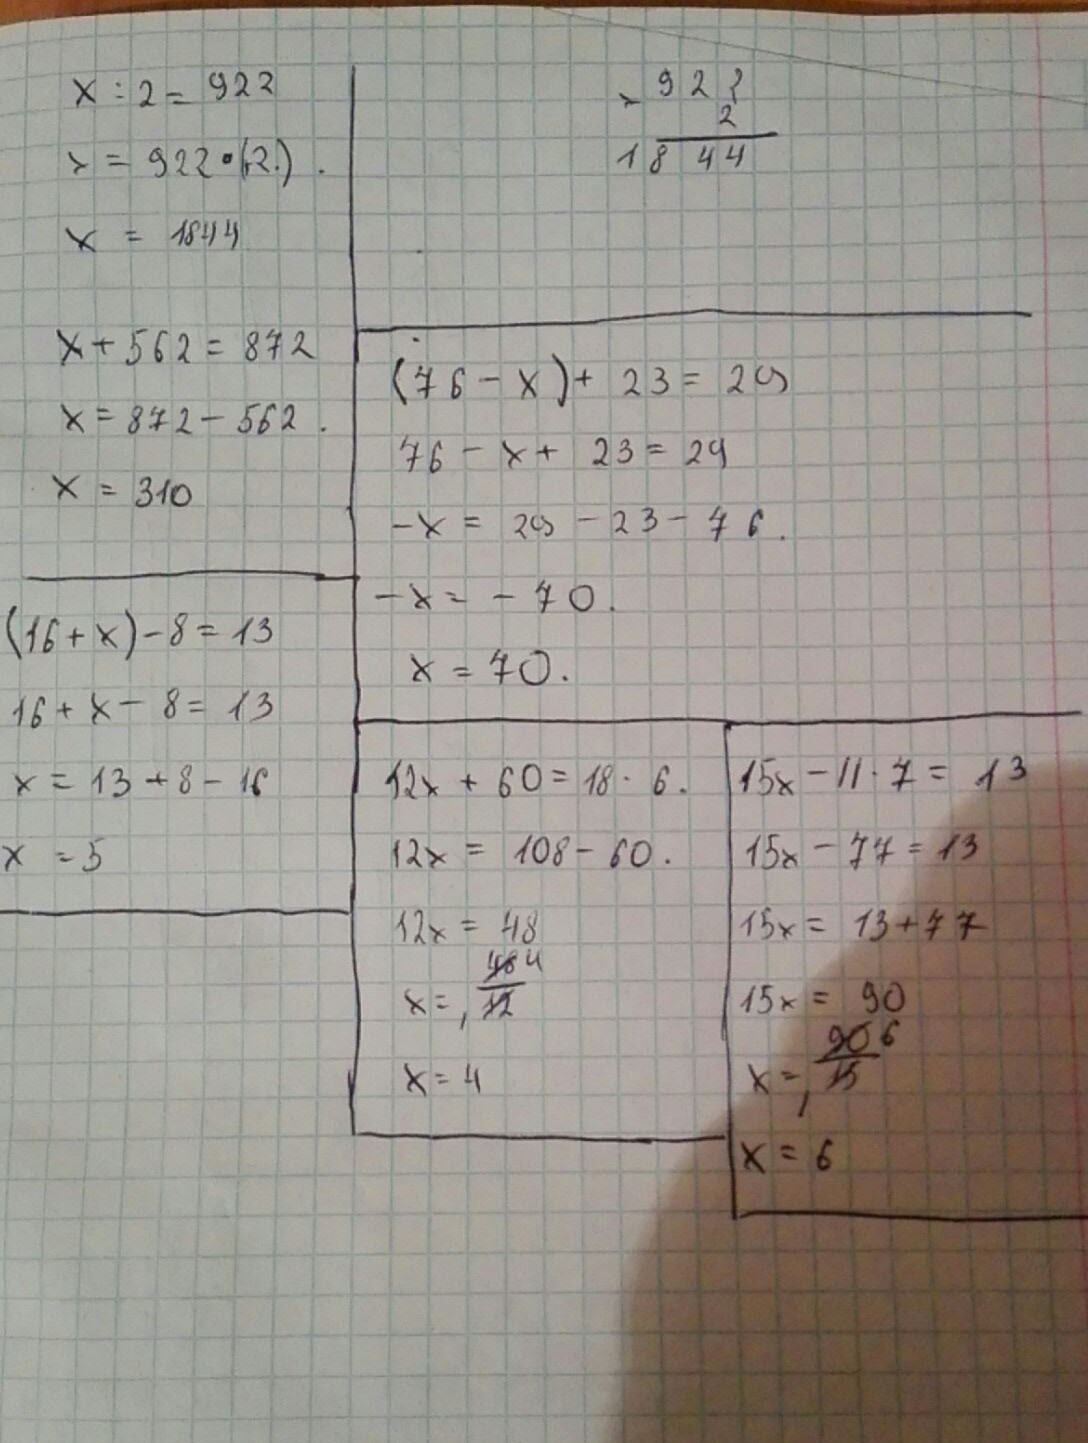 x : 2 = 922
x = 922 • (2.) .
x = 1844
x 922
2
1844
x + 562 = 872
x = 872 - 562 .
x = 310
(76 - x) + 23 = 29
76 - x + 23 = 29
-x = 29 - 23 - 76 .
-x = - 70 .
x = 70 .
(16 + x) - 8 = 13
16 + x - 8 = 13
x = 13 + 8 - 16
x = 5
12x + 60 = 18 · 6 .
12x = 108 - 60 .
12x = 48
48 4
x = , 12
x = 4
15x - 11 · 7 = 13
15x - 77 = 13
15x = 13 + 77
15x = 90
90 6
x = , 15
x = 6